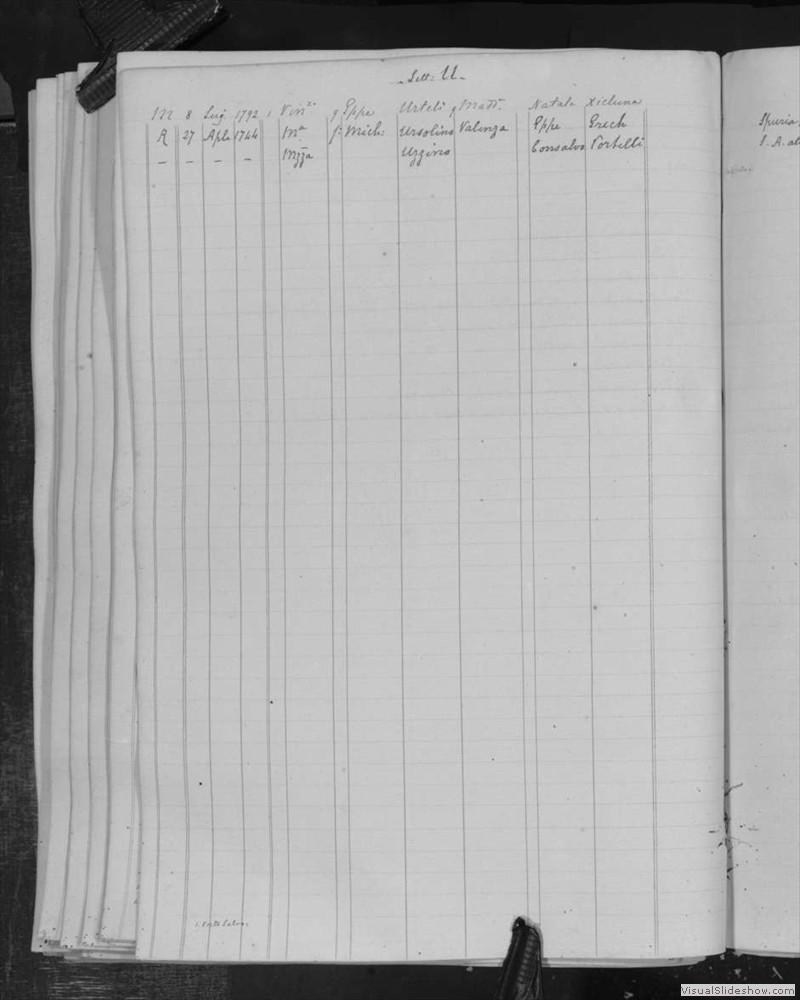 Lett: U
M 8 Lug 1792 Vin.zo q Eppe Urteli q Matt. Natala Xicluna
R 27 Aple 1744 M.a f: Mich: Ursolino Valenza Eppe Grech
– – – – Mzza Uzzino Consalvo Portelli
Spuria
VisualSlideshow.com